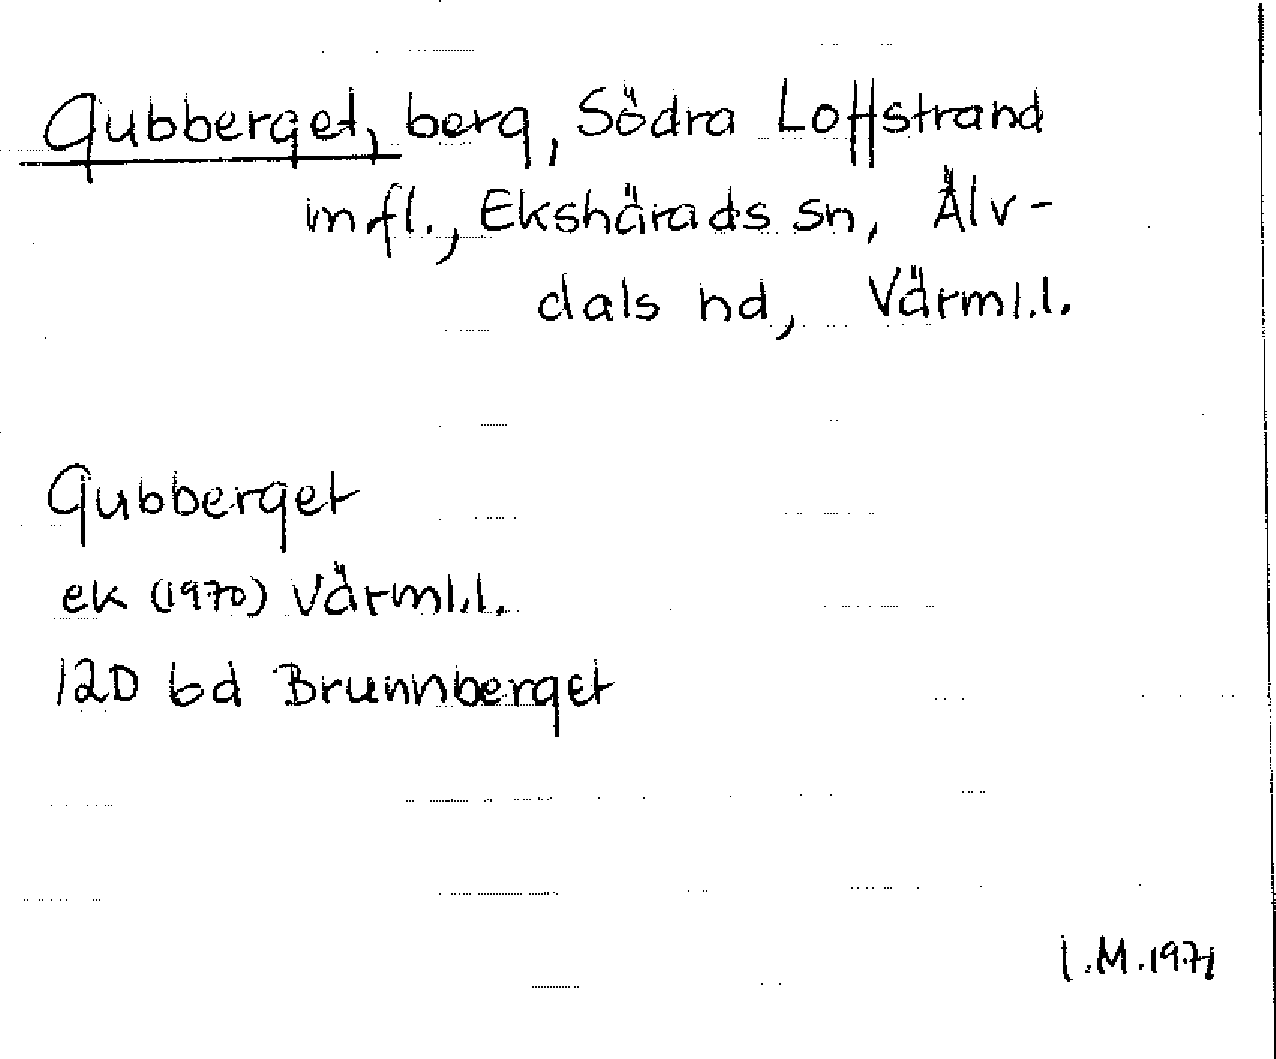 Gubberget, berg, Södra Loffstrand
m.fl., Ekshärads sn, Älv-
dals hd, Värml.l.
Gubberget
ek (1970) Värml.l.
12D bd Brunnberget
I.M.1971